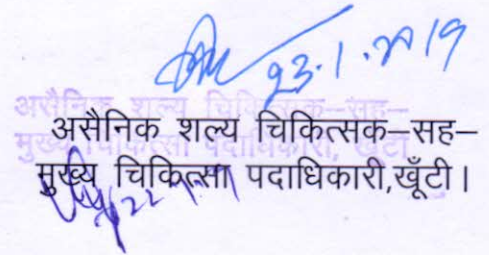 23.1.2019
असैनिक शल्य चिकित्सक–सह–
मुख्य चिकित्सा पदाधिकारी, खूँटी
असैनिक शल्य चिकित्सक–सह–
मुख्य चिकित्सा पदाधिकारी,खूँटी।